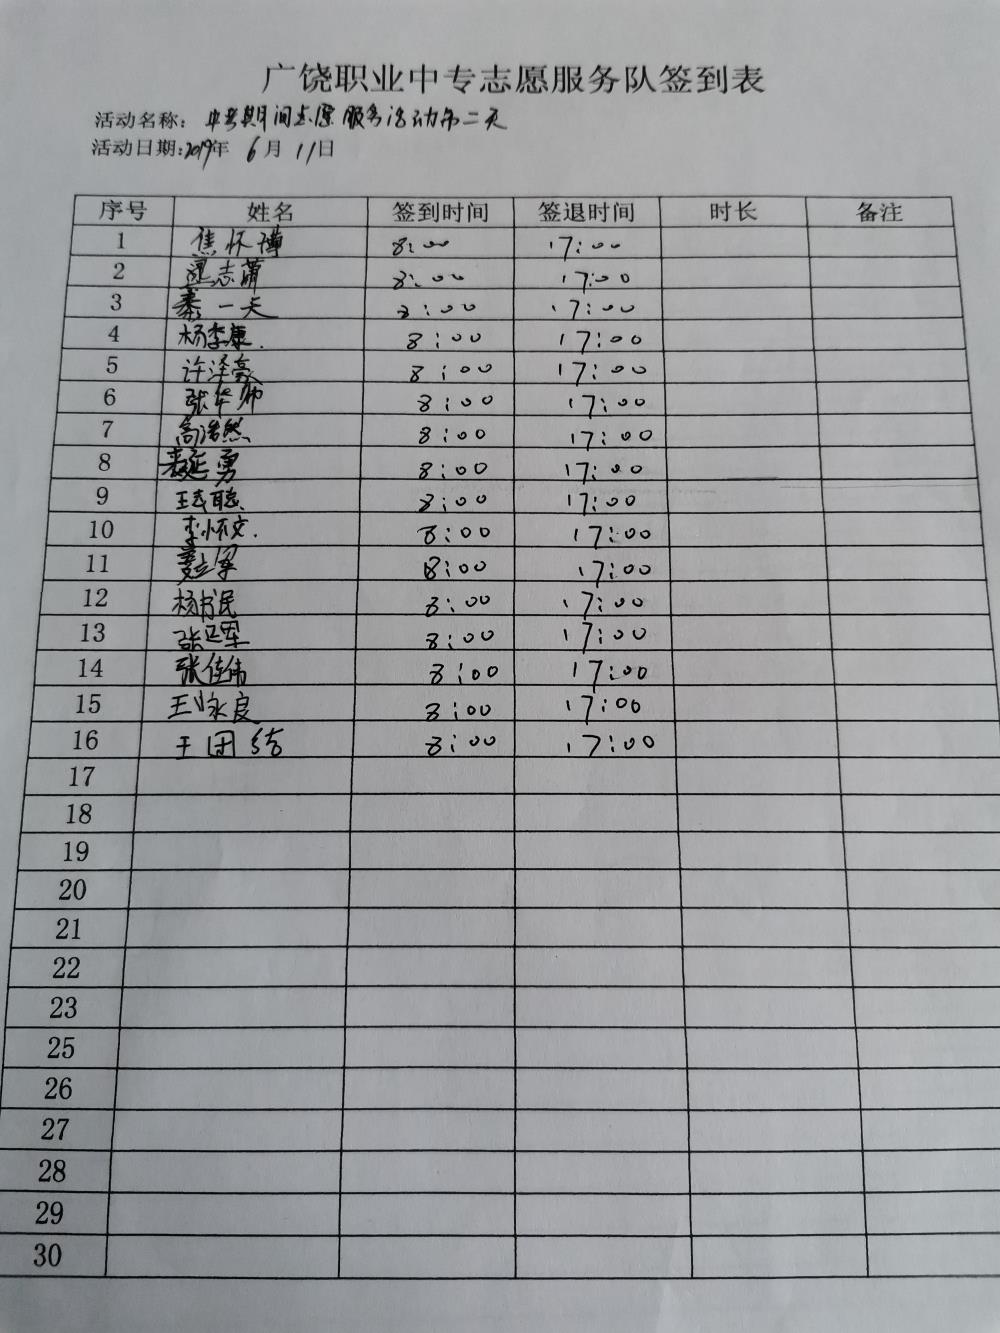 广饶职业中专志愿服务队签到表
活动名称: 中考期间志愿服务活动第二天
活动日期:2019年 6月 11日
序号 姓名 签到时间 签退时间 时长 备注
1 焦怀博 8:00 17:00
2 志萧 8:00 17:00
3 一天 8:00 17:00
4 杨李康. 8:00 17:00
5 许泽豪 8:00 17:00
6 张华帅 8:00 17:00
7 高浩然 8:00 17:00
8 延勇 8:00 17:00
9 王志聪 8:00 17:00
10 李怀文. 8:00 17:00
11 8:00 17:00
12 杨书民 8:00 17:00
13 张正军 8:00 17:00
14 张佳伟 8:00 17:00
15 王咏良 8:00 17:00
16 王团结 8:00 17:00
17
18
19
20
21
22
23
25
26
27
28
29
30